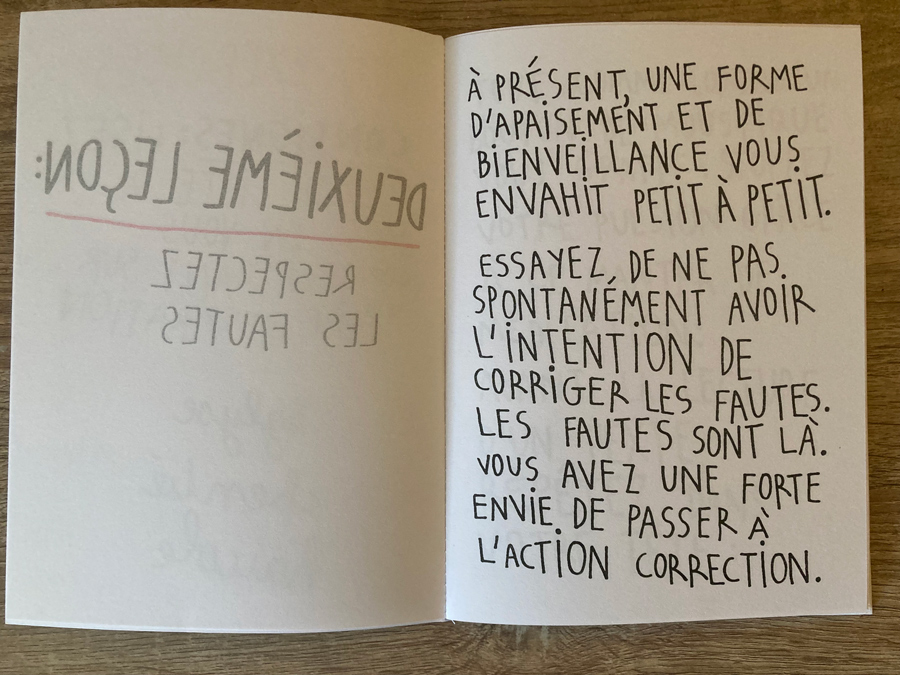 DEUXIÈME LEÇON:
RESPECTEZ
LES FAUTES
À PRÉSENT, UNE FORME
D'APAISEMENT ET DE
BIENVEILLANCE VOUS
ENVAHIT PETIT À PETIT.
ESSAYEZ, DE NE PAS
SPONTANÉMENT AVOIR
L'INTENTION DE
CORRIGER LES FAUTES.
LES FAUTES SONT LÀ.
VOUS AVEZ UNE FORTE
ENVIE DE PASSER À
L'ACTION CORRECTION.